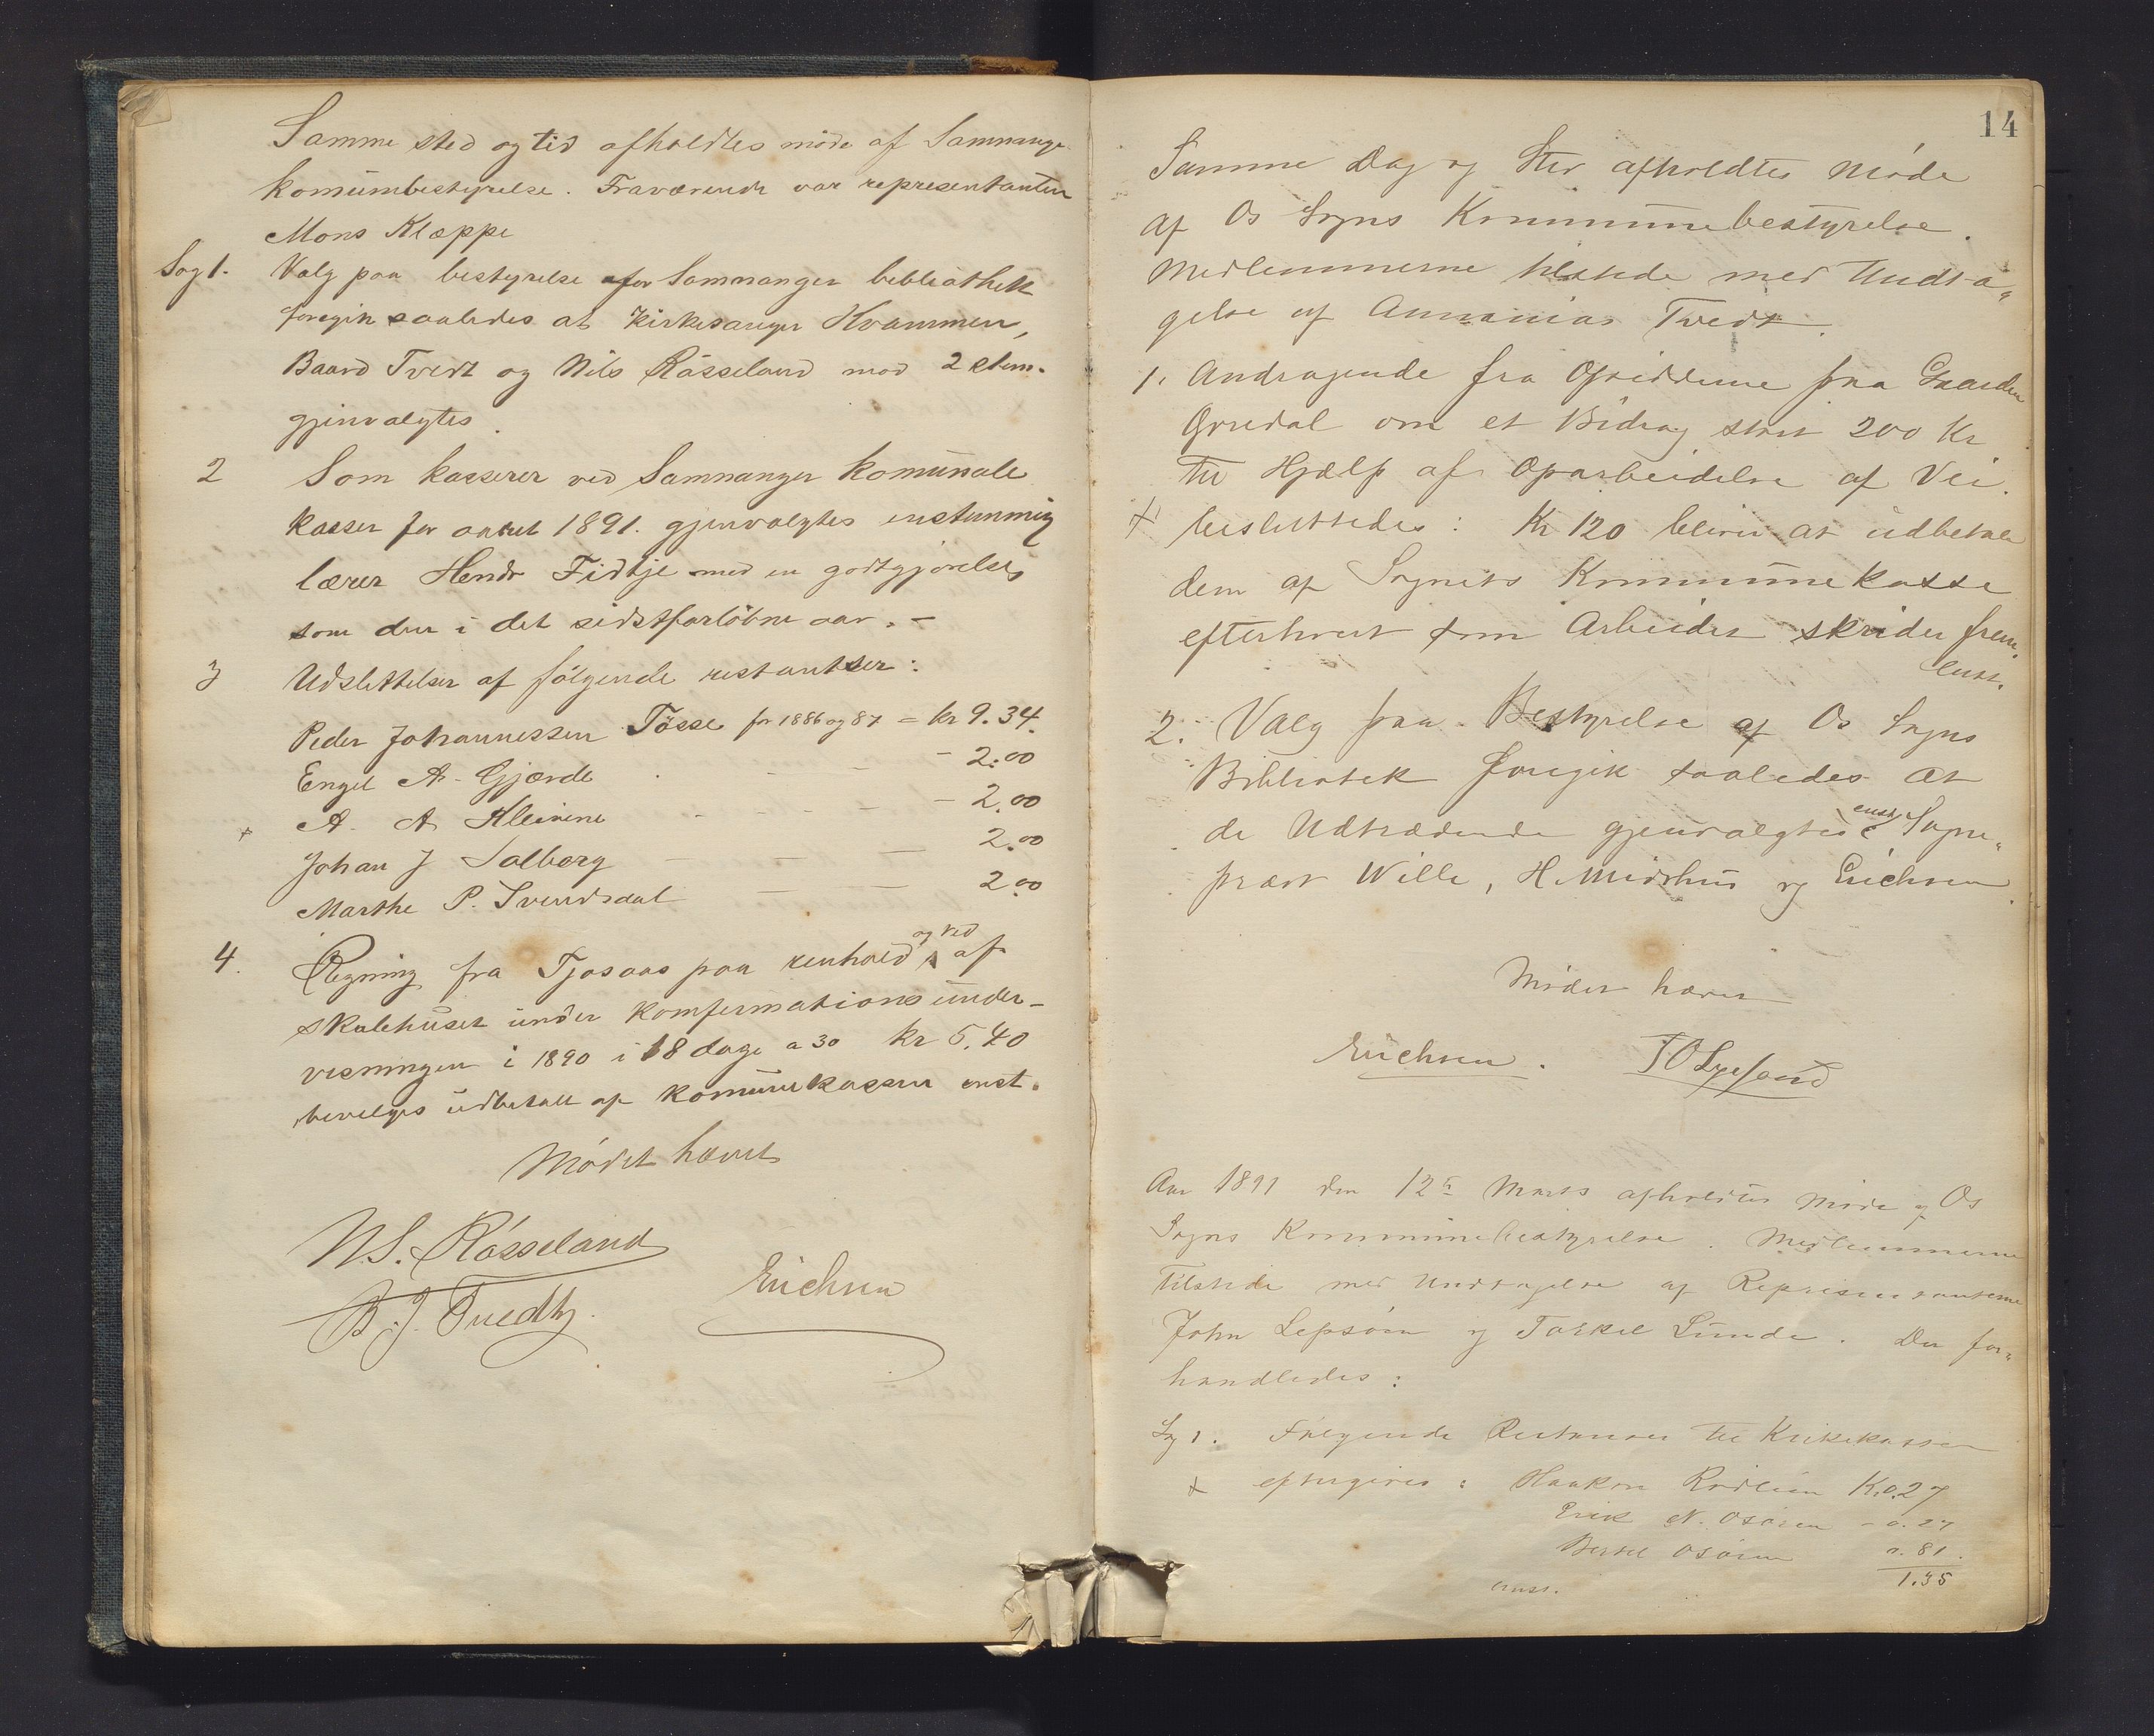 Samme sted og tid afholdtes möde af Samnanger
komünbestyrelse. Fraværende var representanten
Mons Kleppe
Sag 1. Valg paa bestyrelse for Samnanger bibliothek
foregik saaledes at Kirkesanger Kvammen,
Baard Tvedt og Nils Rösseland mod 2 stem.
gjenvalgtes.
2 Som kasserer ved Samnanger komünale
kasser for aaret 1891. gjenvalgtes enstemmig
lærer Hendr Fidtje med en godtgjörelse
som den i det sidstforlöbne aar. -
3 Udslettelser af fölgende restantser:
Peder Johannessen Tösse for 1886 og 87 = kr 9.34.
Engel A. Gjerde - 2.00
+ A. A Kleivene - 2.00
Johan J Solberg 2.00
Marthe P. Svendsdal 2.00
4. Regning fra Tjosaas paa renhold og ved af
skolehüset ünder komfermationsünder-
visningen i 1890 i 18 dage a 30 kr 5.40
bevilges üdbetalt af komünekassen enst.
Mödet hævet
N.S. Rösseland
B. J. Tvedt Erichsen
14
Samme Dag og Sted afholdtes Möde
af Os Sogns Kommünebestyrelse.
Medlemmerne tilstede med Undta-
gelse af Annanias Tvedt.
1. Andragende fra Opsidderne paa Gaarden
om et Bidrag stort 200 Kr
til Hjælp af Oparbeidelse af Vei.
+ besluttedes: Kr 120 bliver at üdbetale
dem af Sognets Kommünekasse
efterhvert som Arbeidet skrider frem.
Enst.
2. Valg paa Bestyrelse af Os Sogns
Bibliotek foregik saaledes at
de Udtrædende gjenvalgtes enst. Sogne-
præst Wille, H. Midthus og Erichsen.
Mödet hævet
Erichsen. T O Lyssand
Aar 1891 den 12te Marts afholdtes Möde af Os
Sogns Kommünebestyrelse. Medlemmerne
tilstede med Undtagelse af Repræsentanterne
John Lepsöen og Torkel Lünde. Der for-
handledes:
Sag 1. Fölgende Restanser til Kirkekassen
+ eftergives: Haakon Rödlien K. 0.27
Erik N. Osören - 0.27
Bertel Osören 0.81.
enst. 1.35